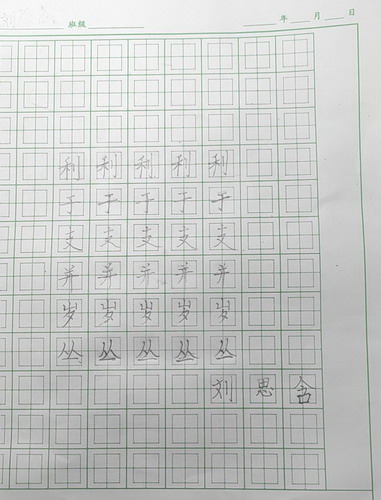 班级 年 月 日
利 利 利 利 利
于 于 于 于 于
支 支 支 支 支
并 并 并 并 并
岁 岁 岁 岁 岁
丛 丛 丛 丛 丛
刘 思 含